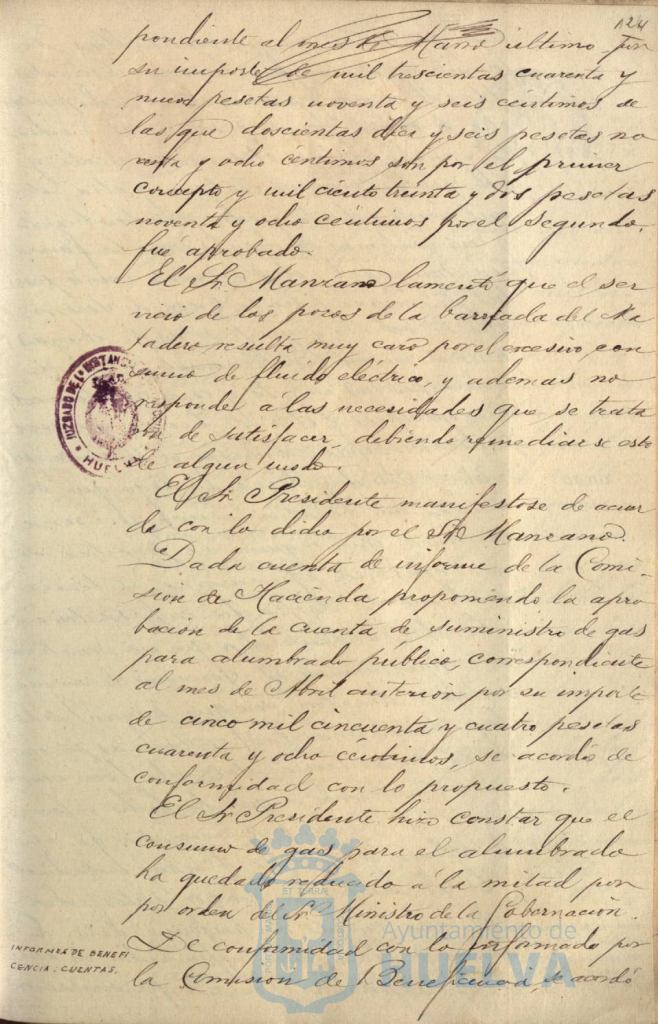 124
pondiente al mes de Marzo último por
su importe de mil trescientas cuarenta y
nueve pesetas noventa y seis céntimos de
las que doscientas diez y seis pesetas no
venta y ocho céntimos son por el primer
concepto y mil ciento treinta y dos pesetas
noventa y ocho céntimos por el segundo,
fue aprobado.
El Sr. Manzano lamentó que el ser
vicio de los pozos de la barriada del Ma
tadero resulta muy caro por el excesivo con
sumo de fluido eléctrico, y ademas no
responder á las necesidades que se trata
de satisfacer, debiendo remediarse esto
de algun modo.
El Sr. Presidente manifestose de acuer
do con lo dicho por el Sr. Manzano.
Dada cuenta de informe de la Comi
sión de Hacienda proponiendo la apro
bación de la cuenta de suministro de gas
para alumbrado público, correspondiente
al mes de Abril anterior por su importe
de cinco mil cincuenta y cuatro pesetas
cuarenta y ocho céntimos, se acordó de
conformidad con lo propuesto.
El Sr. Presidente hizo constar que el
consumo de gas para el alumbrado
ha quedado reducido á la mitad por
por orden del Sr. Ministro de la Gobernación.
De conformidad con lo informado por
la Comision de Beneficencia, se acordó
INFORMES DE BENEFI
CENCIA. CUENTAS.
JUZGADO DE 1ª INSTANCIA
HUELVA
Ayuntamiento de
HUELVA